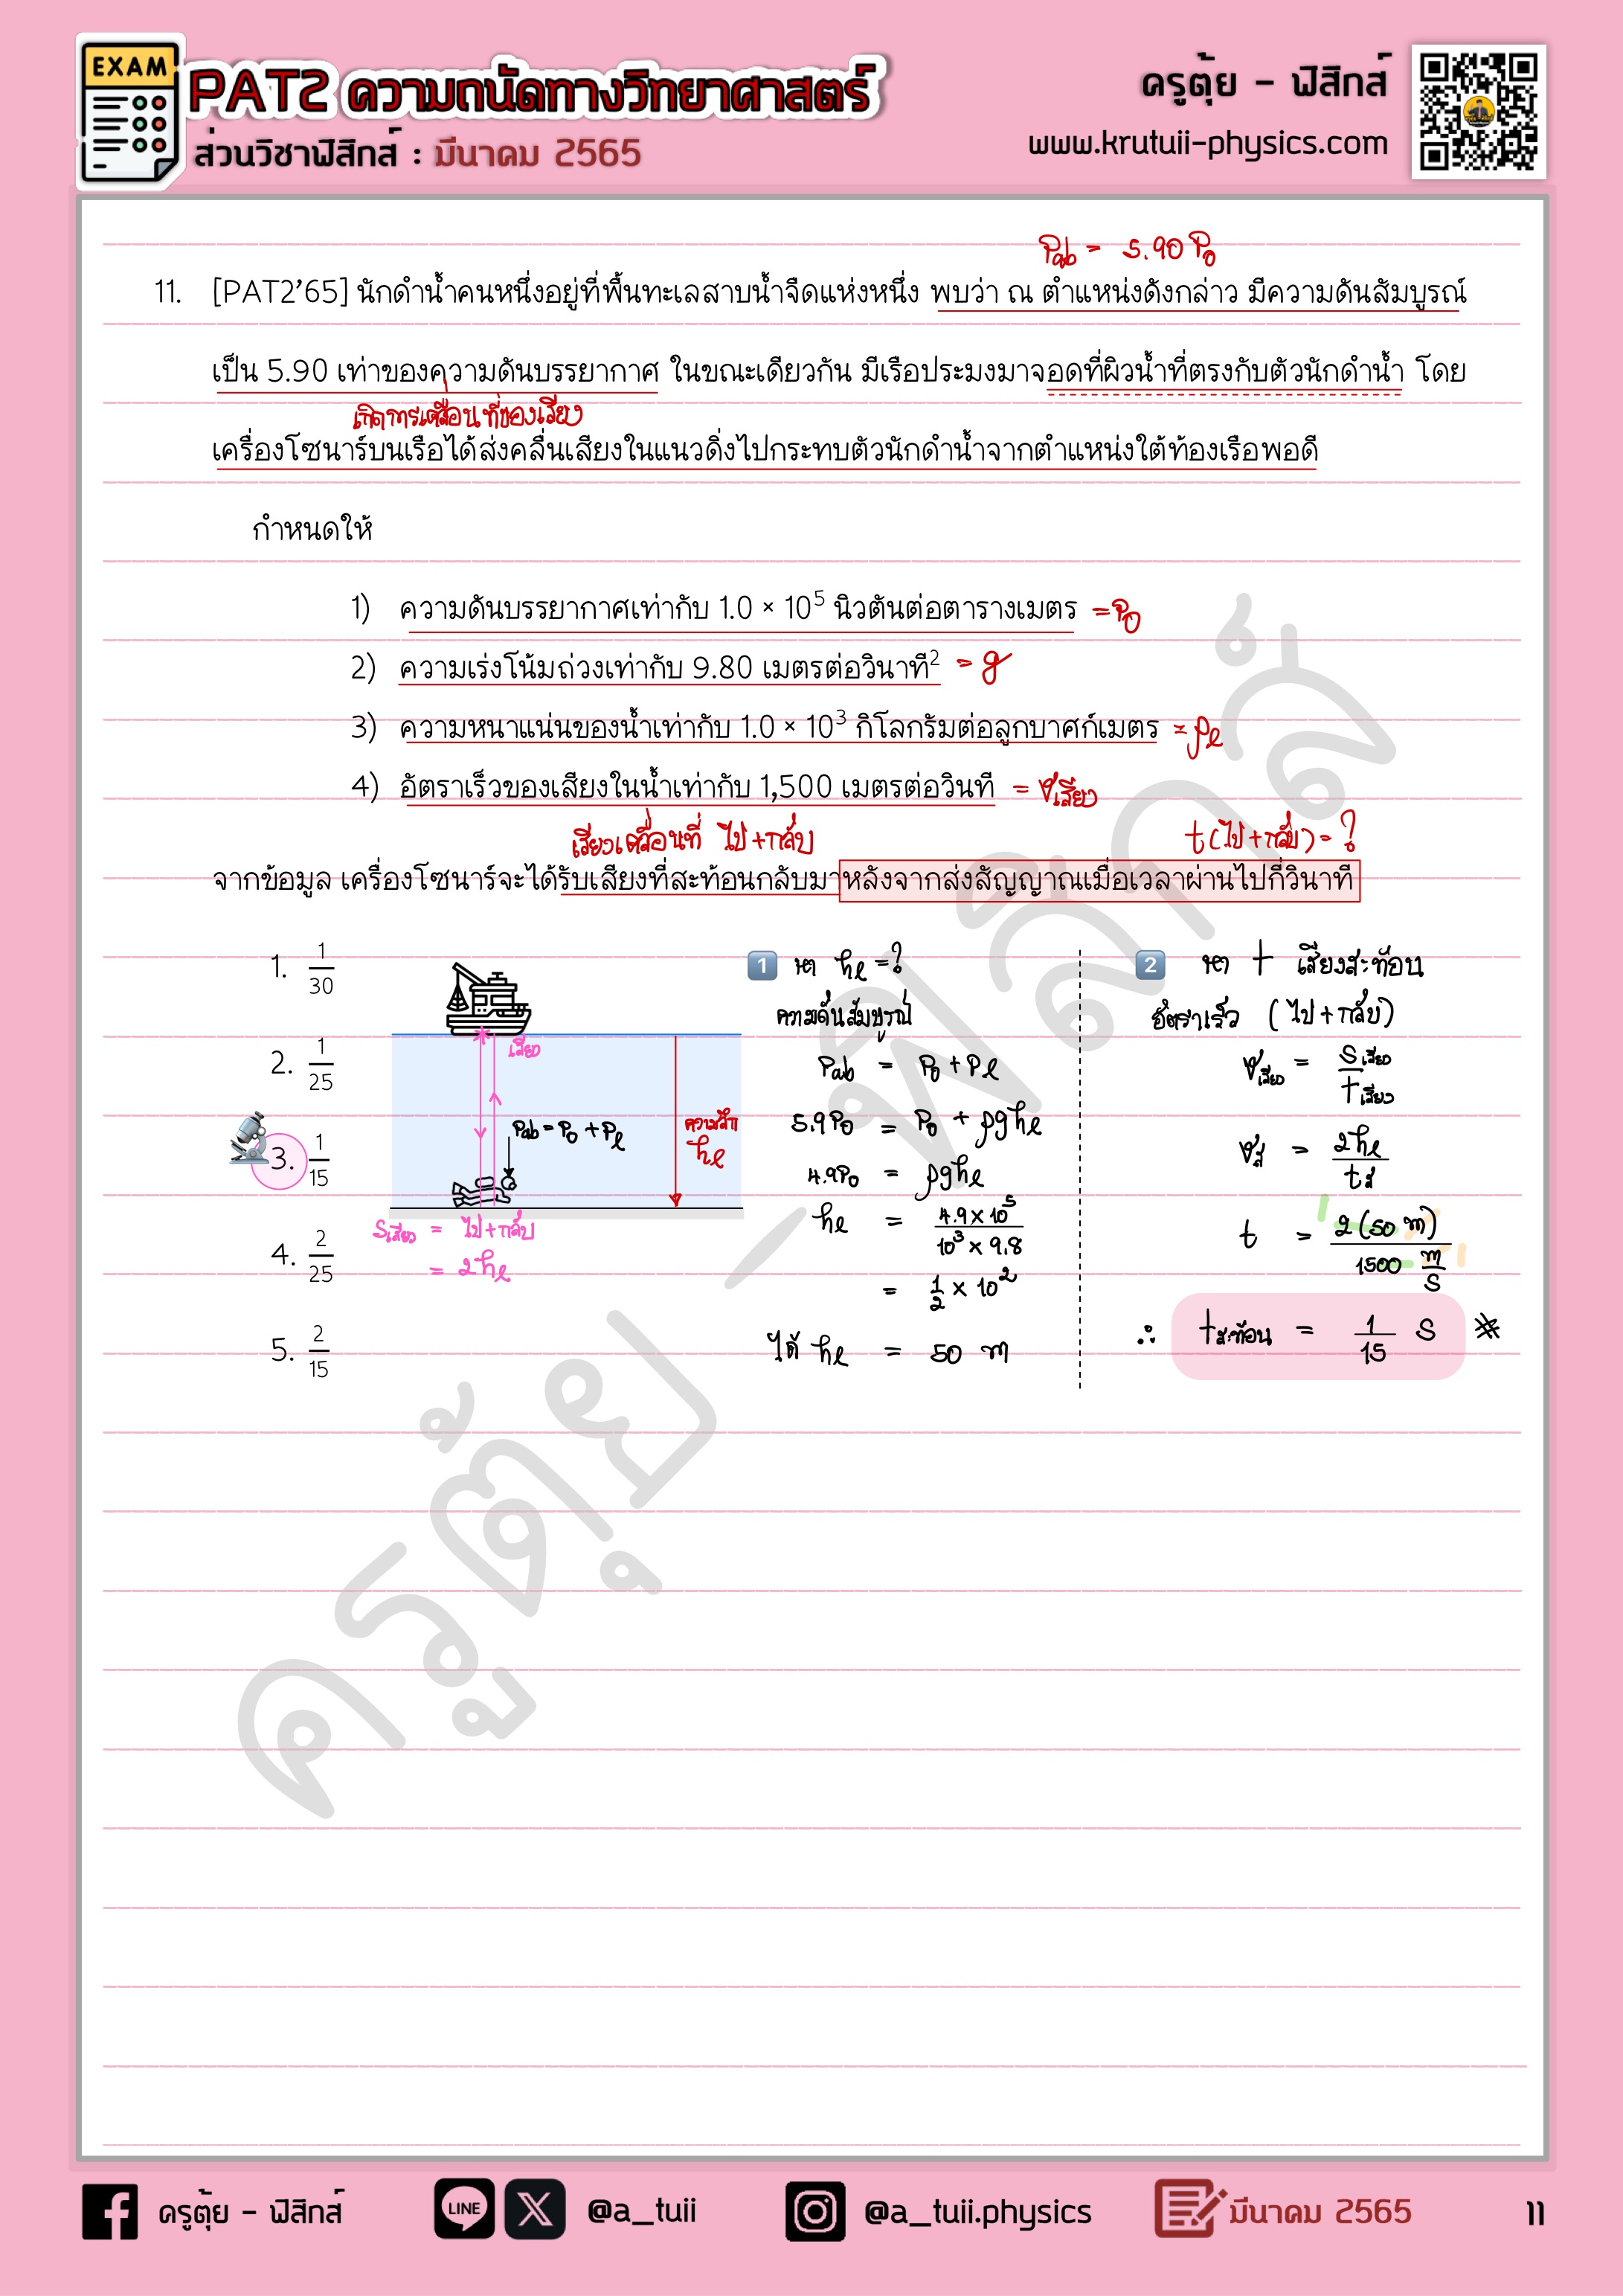 EXAM
PAT2 ความถนัดทางวิทยาศาสตร์
ส่วนวิชาฟิสิกส์ : มีนาคม 2565
ครูตุ้ย – ฟิสิกส์
www.krutuii-physics.com
Pab = 5.90 P₀
11. [PAT2'65] นักดำน้ำคนหนึ่งอยู่ที่พื้นทะเลสาบน้ำจืดแห่งหนึ่ง พบว่า ณ ตำแหน่งดังกล่าว มีความดันสัมบูรณ์
เป็น 5.90 เท่าของความดันบรรยากาศ ในขณะเดียวกัน มีเรือประมงมาจอดที่ผิวน้ำที่ตรงกับตัวนักดำน้ำ โดย
เกิดการเคลื่อนที่ของเสียง
เครื่องโซนาร์บนเรือได้ส่งคลื่นเสียงในแนวดิ่งไปกระทบตัวนักดำน้ำจากตำแหน่งใต้ท้องเรือพอดี
กำหนดให้
1) ความดันบรรยากาศเท่ากับ 1.0 × 10⁵ นิวตันต่อตารางเมตร = P₀
2) ความเร่งโน้มถ่วงเท่ากับ 9.80 เมตรต่อวินาที² = g
3) ความหนาแน่นของน้ำเท่ากับ 1.0 × 10³ กิโลกรัมต่อลูกบาศก์เมตร = ρl
4) อัตราเร็วของเสียงในน้ำเท่ากับ 1,500 เมตรต่อวินที = vเสียง
เสียงเคลื่อนที่ ไป+กลับ t(ไป+กลับ) = ?
จากข้อมูล เครื่องโซนาร์จะได้รับเสียงที่สะท้อนกลับมาหลังจากส่งสัญญาณเมื่อเวลาผ่านไปกี่วินาที
1. 1/30
2. 1/25
3. 1/15
4. 2/25
5. 2/15
เสียง
Pab = P₀ + Pl
ความลึก
hl
Sเสียง = ไป+กลับ
= 2hl
1 หา hl = ?
ความดันสัมบูรณ์
Pab = P₀ + Pl
5.9P₀ = P₀ + ρghl
4.9P₀ = ρghl
hl = 4.9 × 10⁵ / 10³ × 9.8
= 1/2 × 10²
ได้ hl = 50 m
2 หา t เสียงสะท้อน
อัตราเร็ว (ไป+กลับ)
vเสียง = Sเสียง / tเสียง
vส = 2hl / tส
t = 2(50 m) / 1500 m/s
1
1
∴ tสะท้อน = 1/15 s *
ครูตุ้ย – ฟิสิกส์
ครูตุ้ย – ฟิสิกส์
LINE
X
@a_tuii
@a_tuii.physics
มีนาคม 2565
11